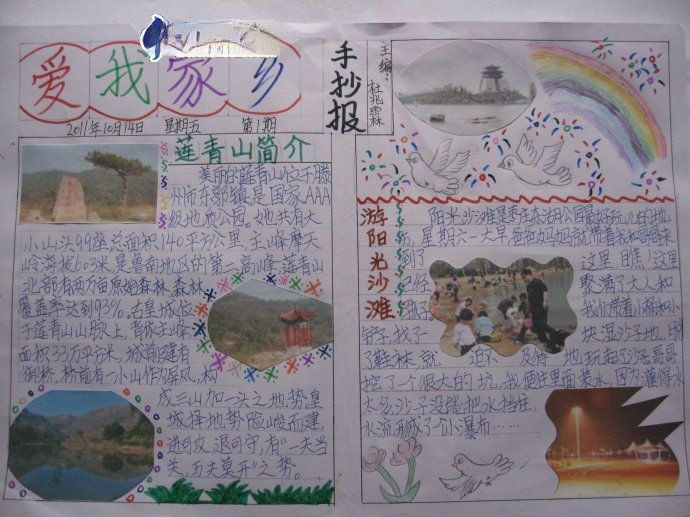 爱我家乡
手抄报
主编：
杜兆霖
2011年10月14日 星期五 第1期
莲青山简介
美丽的莲青山位于滕
州市东郭镇,是国家AAA
级地质公园。她共有大
小山头99座,总面积140平方公里,主峰摩天
岭海拔603米,是鲁南地区的第一高峰,莲青山
北部有两万亩原始森林,森林
覆盖率达到93%。右皇城位
于莲青山山脉上,背依主峰,
面积33万平方米,城前建有
御桥,桥前有一小山作为屏风,构
成三山加一头之地势,皇
城择地势险峻而建,
进可攻,退可守,有“一夫当
关,万夫莫开”之势。
游阳光沙滩
阳光沙滩是枣庄东湖公园最好玩儿的地
方,星期六一大早,爸爸妈妈就带着我和哥哥来
到了这里,瞧!这里
已经聚满了大人和
孩子,我们带着小桶和小
铲子,找了一块湿沙子地,脱
了鞋袜,就迫不及待地玩起了沙子,哥哥
挖了一个很大的坑,我便往里面装水,因为灌得水
太多,沙子没能把水挡住,
水流形成了个小瀑布……